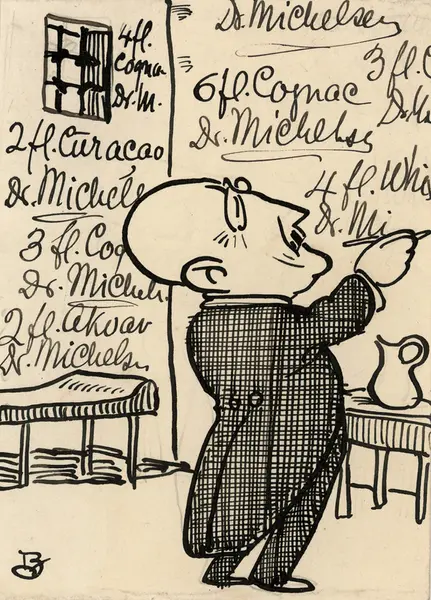 4 fl.
Cogna-
Dr. M.
2 fl. Curaçao
Dr. Michels
3 fl. Cog
Dr. Michels
2 fl. Akvav
Dr. Michelsen
Dr. Michelsen
6 fl. Cognac
Dr. Michelsen
3 fl. C
Dr. M
4 fl. Whis
Dr. Mi